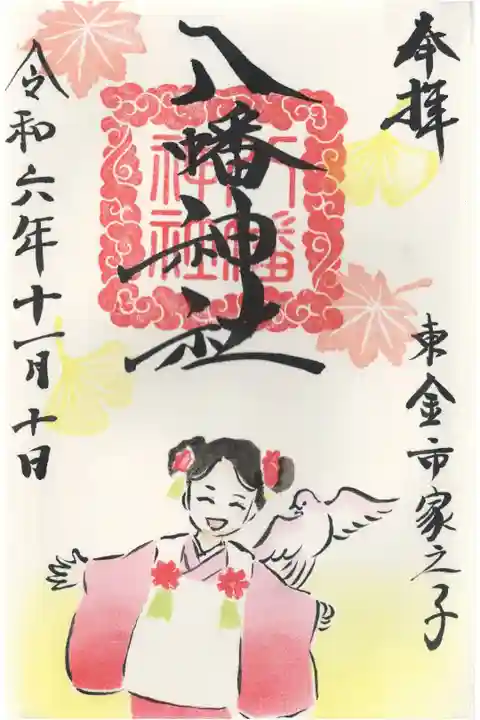 奉拝
東金市家之子
八幡神社
八幡
神社
令和六年十一月十日